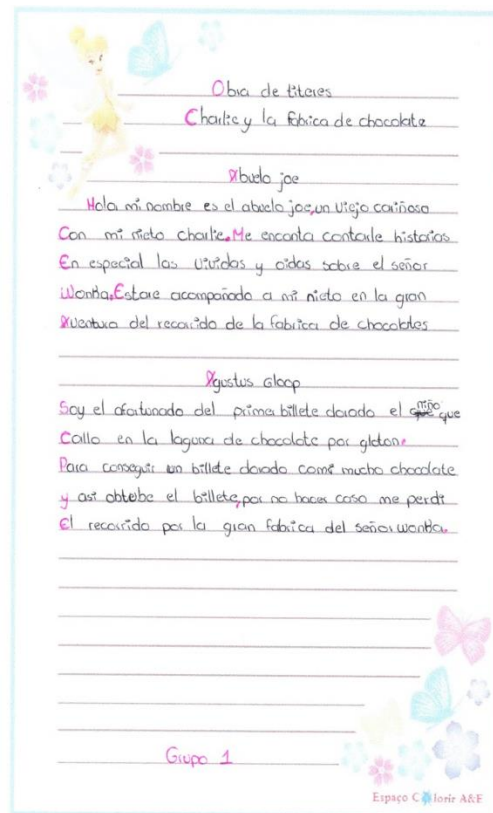 Obra de titeres
Charlie y la fabrica de chocolate
Abuelo joe
Hola mi nombre es el abuelo joe, un viejo cariñoso
Con mi nieto charlie. Me encanta contarle historias
En especial las vividas y oidas sobre el señor
Wonka. Estare acompañado a mi nieto en la gran
Aventura del recorrido de la fabrica de chocolates
Agustus Gloop
Soy el afortunado del primer billete dorado el niño que
Callo en la laguna de chocolate por gloton.
Para conseguir un billete dorado comí mucho chocolate
y asi obtube el billete, por no hacer caso me perdi
El recorrido por la gran fabrica del señor wonka.
Grupo 1
Espaço Colorir A&E